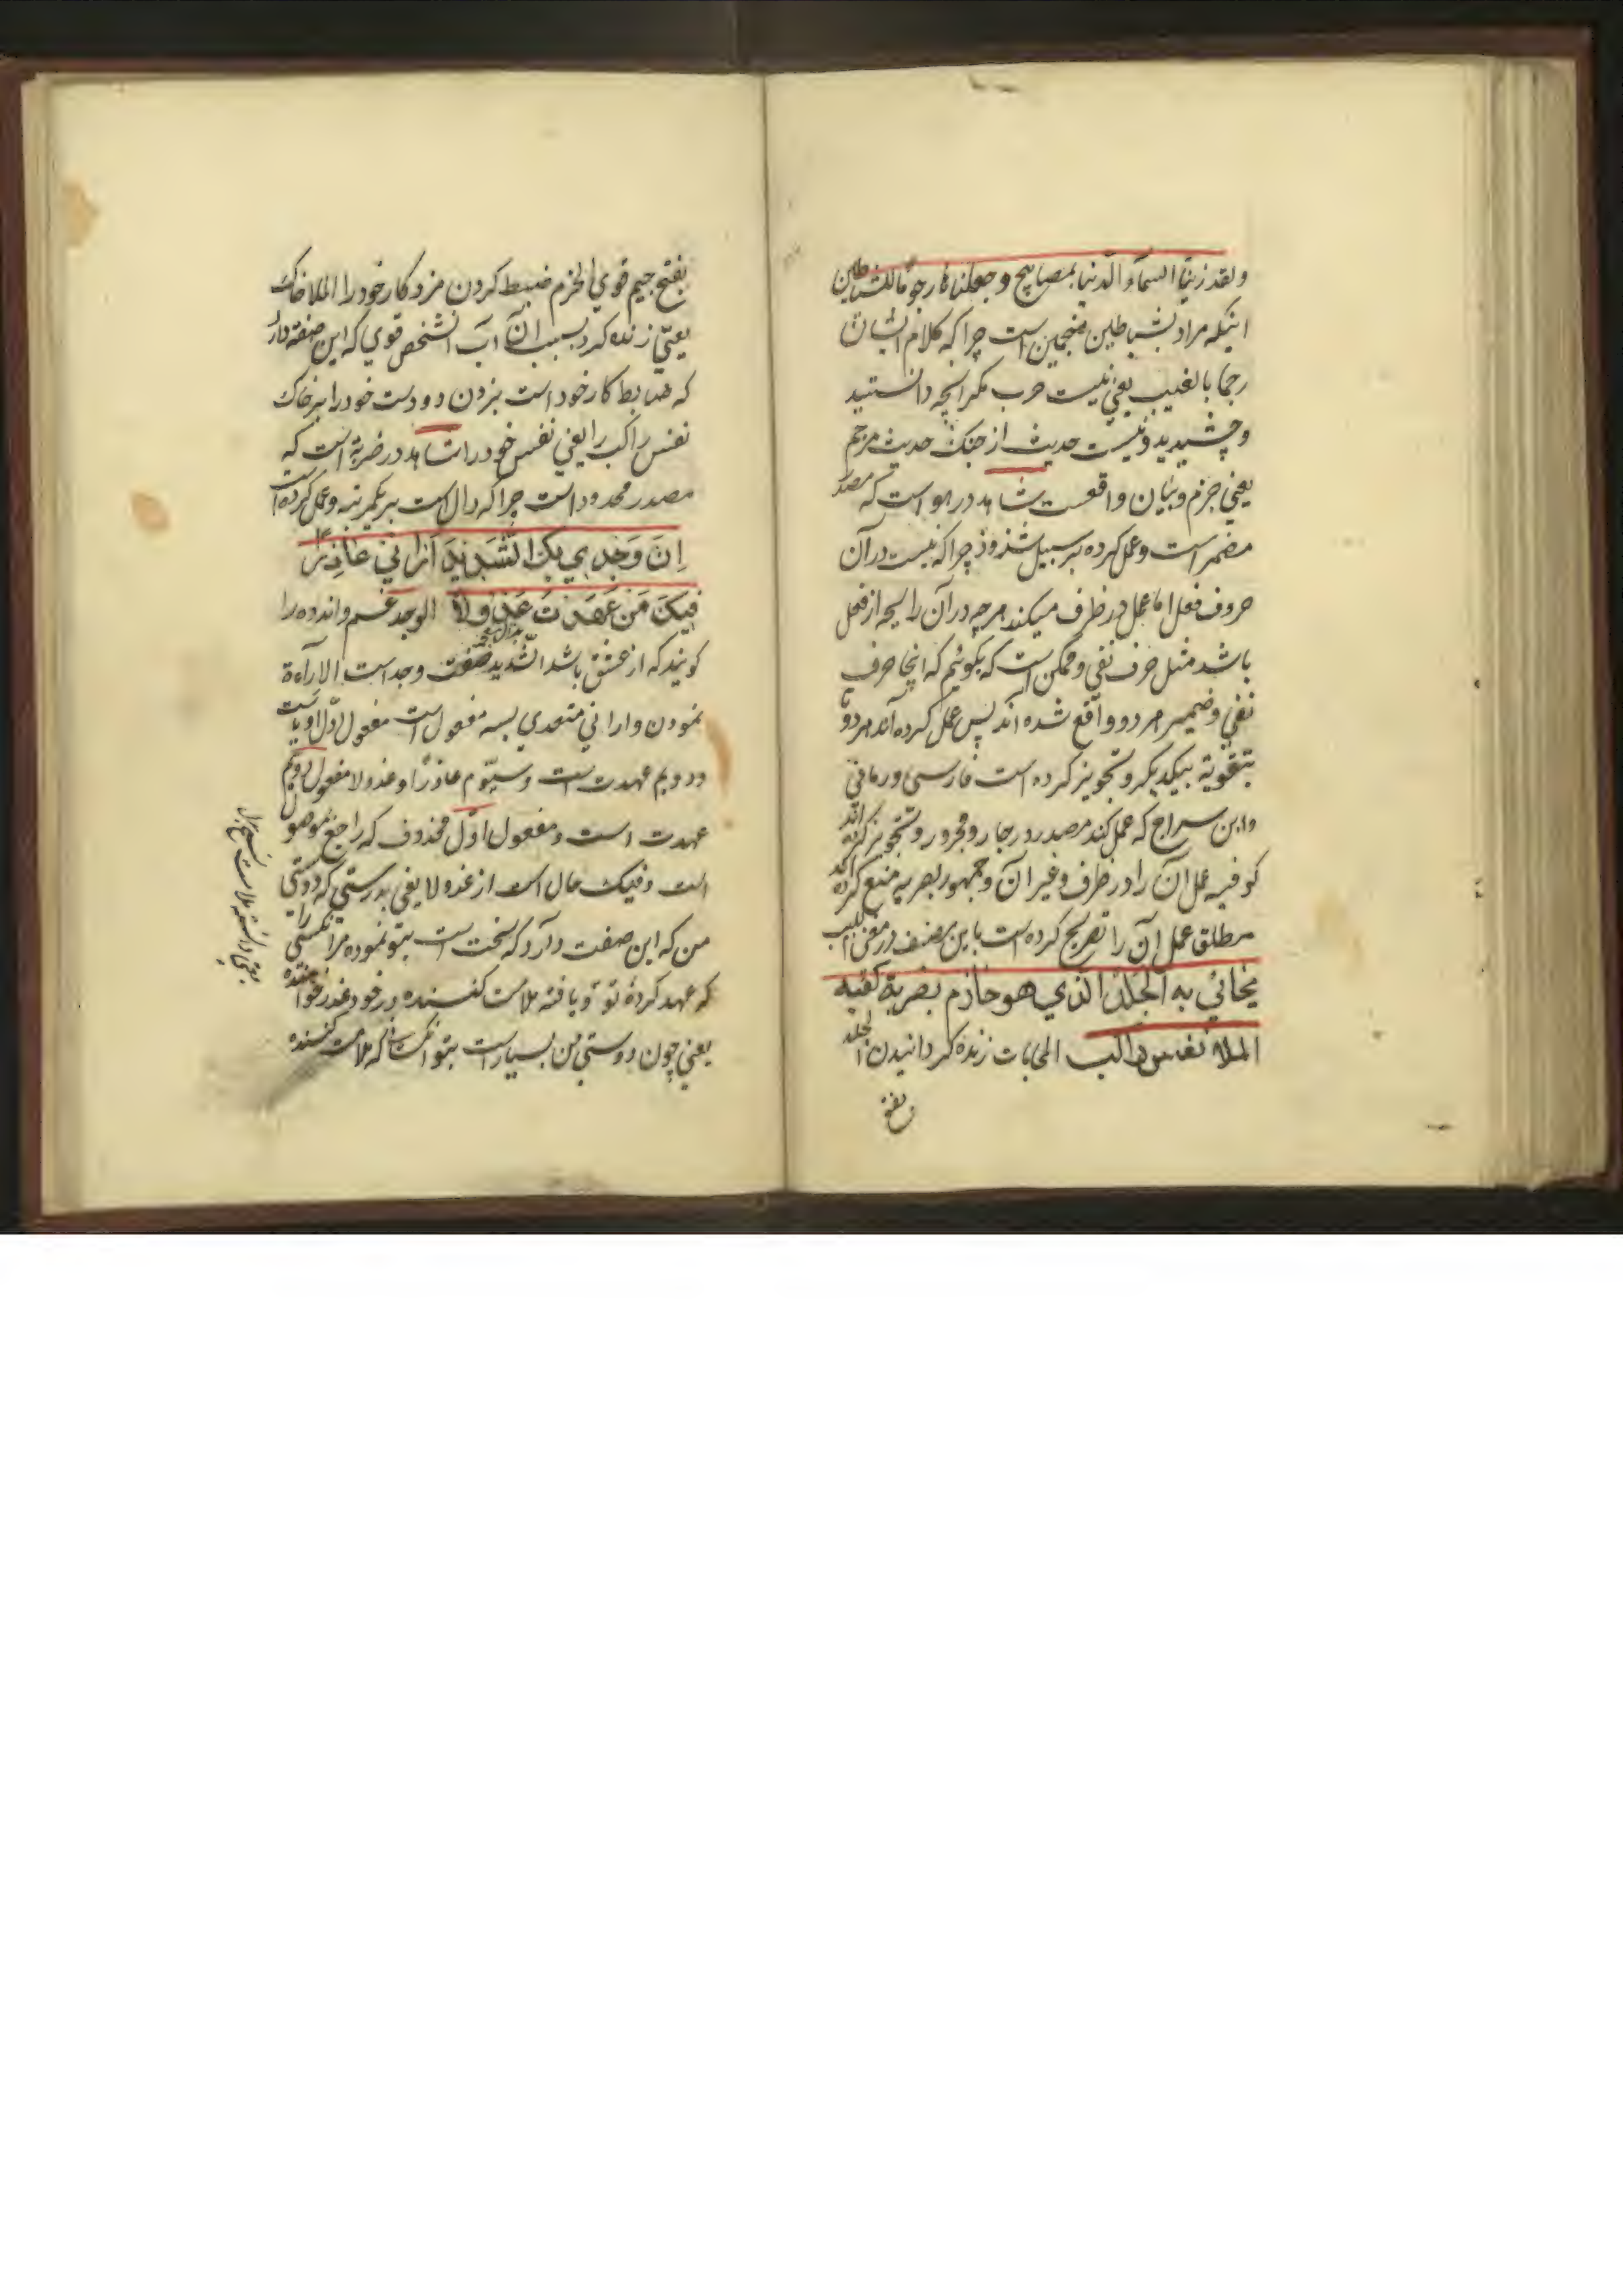 ولقد زینا السمآء الدنیا بمصابیح وجعلناها رجوما للشیاطین
اینکه مراد بشیاطین منجمین است چرا که کلام ایشان
رجما بالغیب یعنی نیست حرب مگر آنچه دانستید
وچشیدید ونیست حدیث از جنک حدیث مرجم
یعنی جزم وبیان واقعست شاهد در هو است که مصدر
مضمر است وعمل کرده بر سبیل شذوذ چرا که نیست در آن
حروف فعل اما عمل در ظرف میکند هر چه در آن رایحه از فعل
باشد مثل حرف نفی وممکن است که بگوئیم که اینجا حرف
نفی وضمیر هر دو واقع شده اند پس عمل کرده اند هر دو تا
بتقویة بیکدیگر وتجویز کرده است فارسی ورمانی
وابن سراج که عمل کند مصدر در جار ومجرور وتجویز کرده اند
کوفیه عمل آن را در ظرف وغیر آن وجمهور بصریه منع کرده اند
مطلق عمل آن را تصریح کرده است باین مصنف در مغنی اللبیب
یحائی به الجلد الذی هو حازم بضربة کفیه
الملا نفس راکب المحایات زنده کردانیدن الجلد
بفتح جیم قوی الحزم ضبط کردن مرد کار خود را الملا خاک
یعنی زنده کرد بسبب آن آب آنشخص قوی که این صفة دارد
که ضابط کار خود است بزدن دو دست خود را بر خاک
نفس راکب را یعنی نفس خود را شاهد در ضربة است که
مصدر محدود است چرا که دال است بر یکمرتبه وعمل کرده است
اِنَّ وَجدِی بِکَ الشَّدِیدَ اَرَانِی عَاذِرًا
فِیکَ مَن عَهِدتُ عَذُولًا الوجد غم واندوه را
کویند که از عشق باشد الشدید صفت وجد است الارآءة
نمودن وارانی متعدی بسه مفعول است مفعول اول او یاست
ودویم عهدت است وسیّوم عاذرًا وعذولا مفعول دویم
عهدت است ومفعول اوّل محذوف که راجع بموصول
است وفیک حال است از عذولا یعنی بدرستی که دوستی
من که این صفت دارد که سخت است بتو نموده مرا کسی را
که عهد کردهٔ تو ویافته ملامت کننده در خود عذر خواهنده
یعنی چون دوستی من بسیار است بتو آنکسانی که ملامت کننده